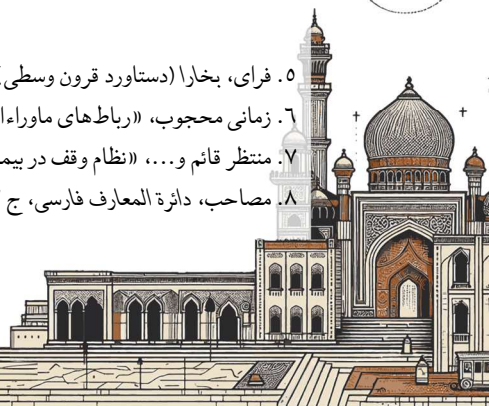 ۵. فرای، بخارا (دستاورد قرون وسطی)
۶. زمانی محجوب، «رباط‌های ماوراءا
۷. منتظر قائم و...، «نظام وقف در بیم
۸. مصاحب، دائرة المعارف فارسی، ج